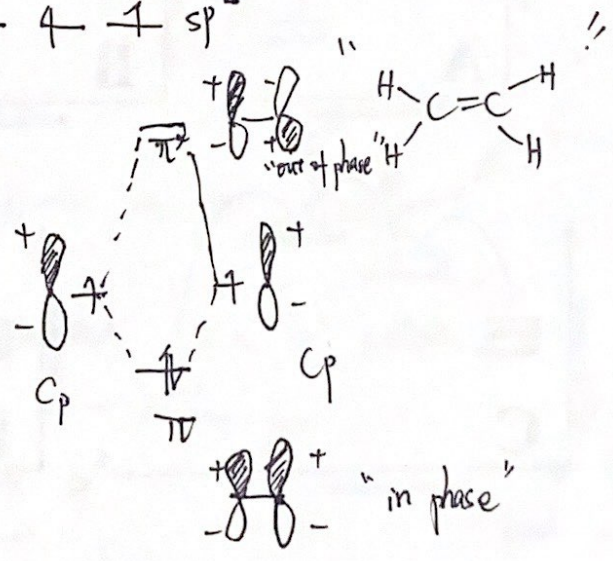 sp
"
"
+ -
- +
"out of phase"
π*
H H
C=C
H H
+ +
- -
Cp Cp
π
+ +
- -
"in phase"